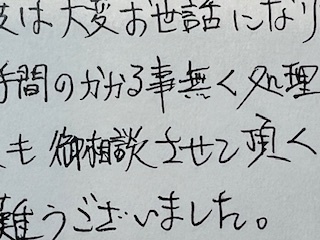 は大変お世話になり
手間のかかる事無く処理
も御相談させて頂く
難うございました。